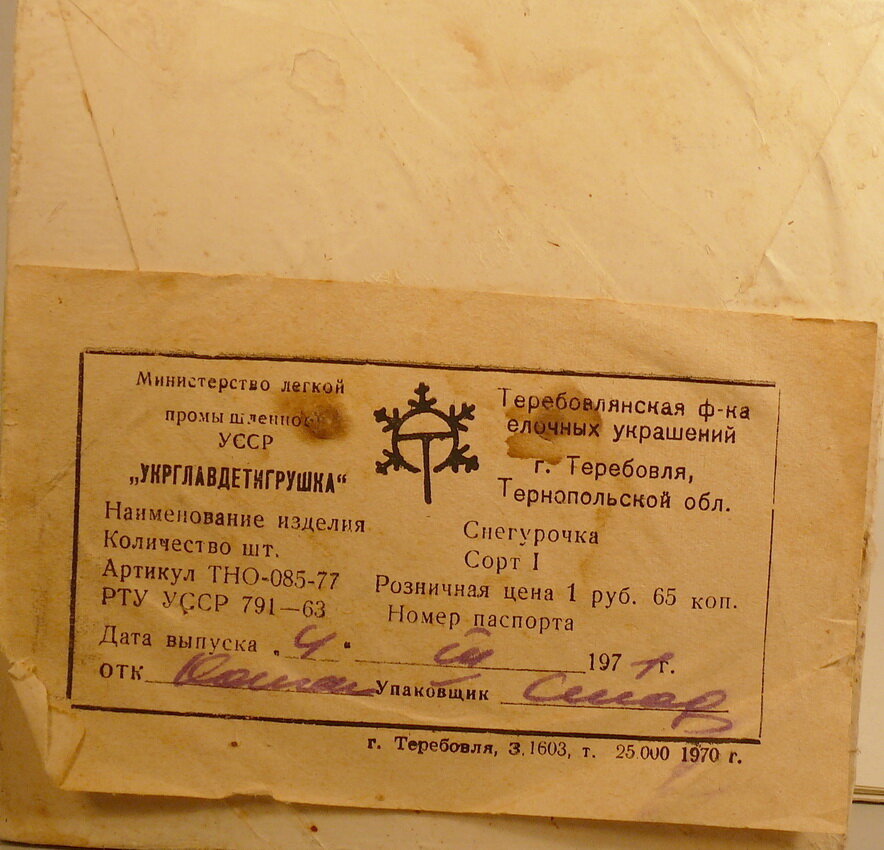 Министерство легкой
промышленности
УССР
„УКРГЛАВДЕТИГРУШКА“
Теребовлянская ф-ка
елочных украшений
г. Теребовля,
Тернопольской обл.
Наименование изделия Снегурочка
Количество шт. Сорт I
Артикул ТНО-085-77 Розничная цена 1 руб. 65 коп.
РТУ УССР 791—63 Номер паспорта
Дата выпуска „ 4 “ III 1971 г.
ОТК Упаковщик
г. Теребовля, З. 1603, т. 25.000 1970 г.